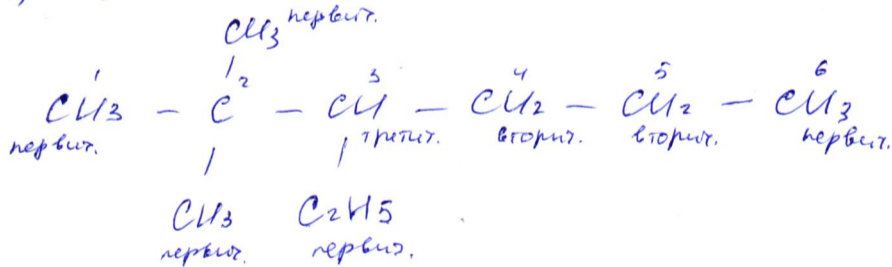 CH3 первич.
1 2 3 4 5 6
CH3 – C – CH – CH2 – CH2 – CH3
первич. третич. вторич. вторич. первич.
CH3 C2H5
первич. первич.